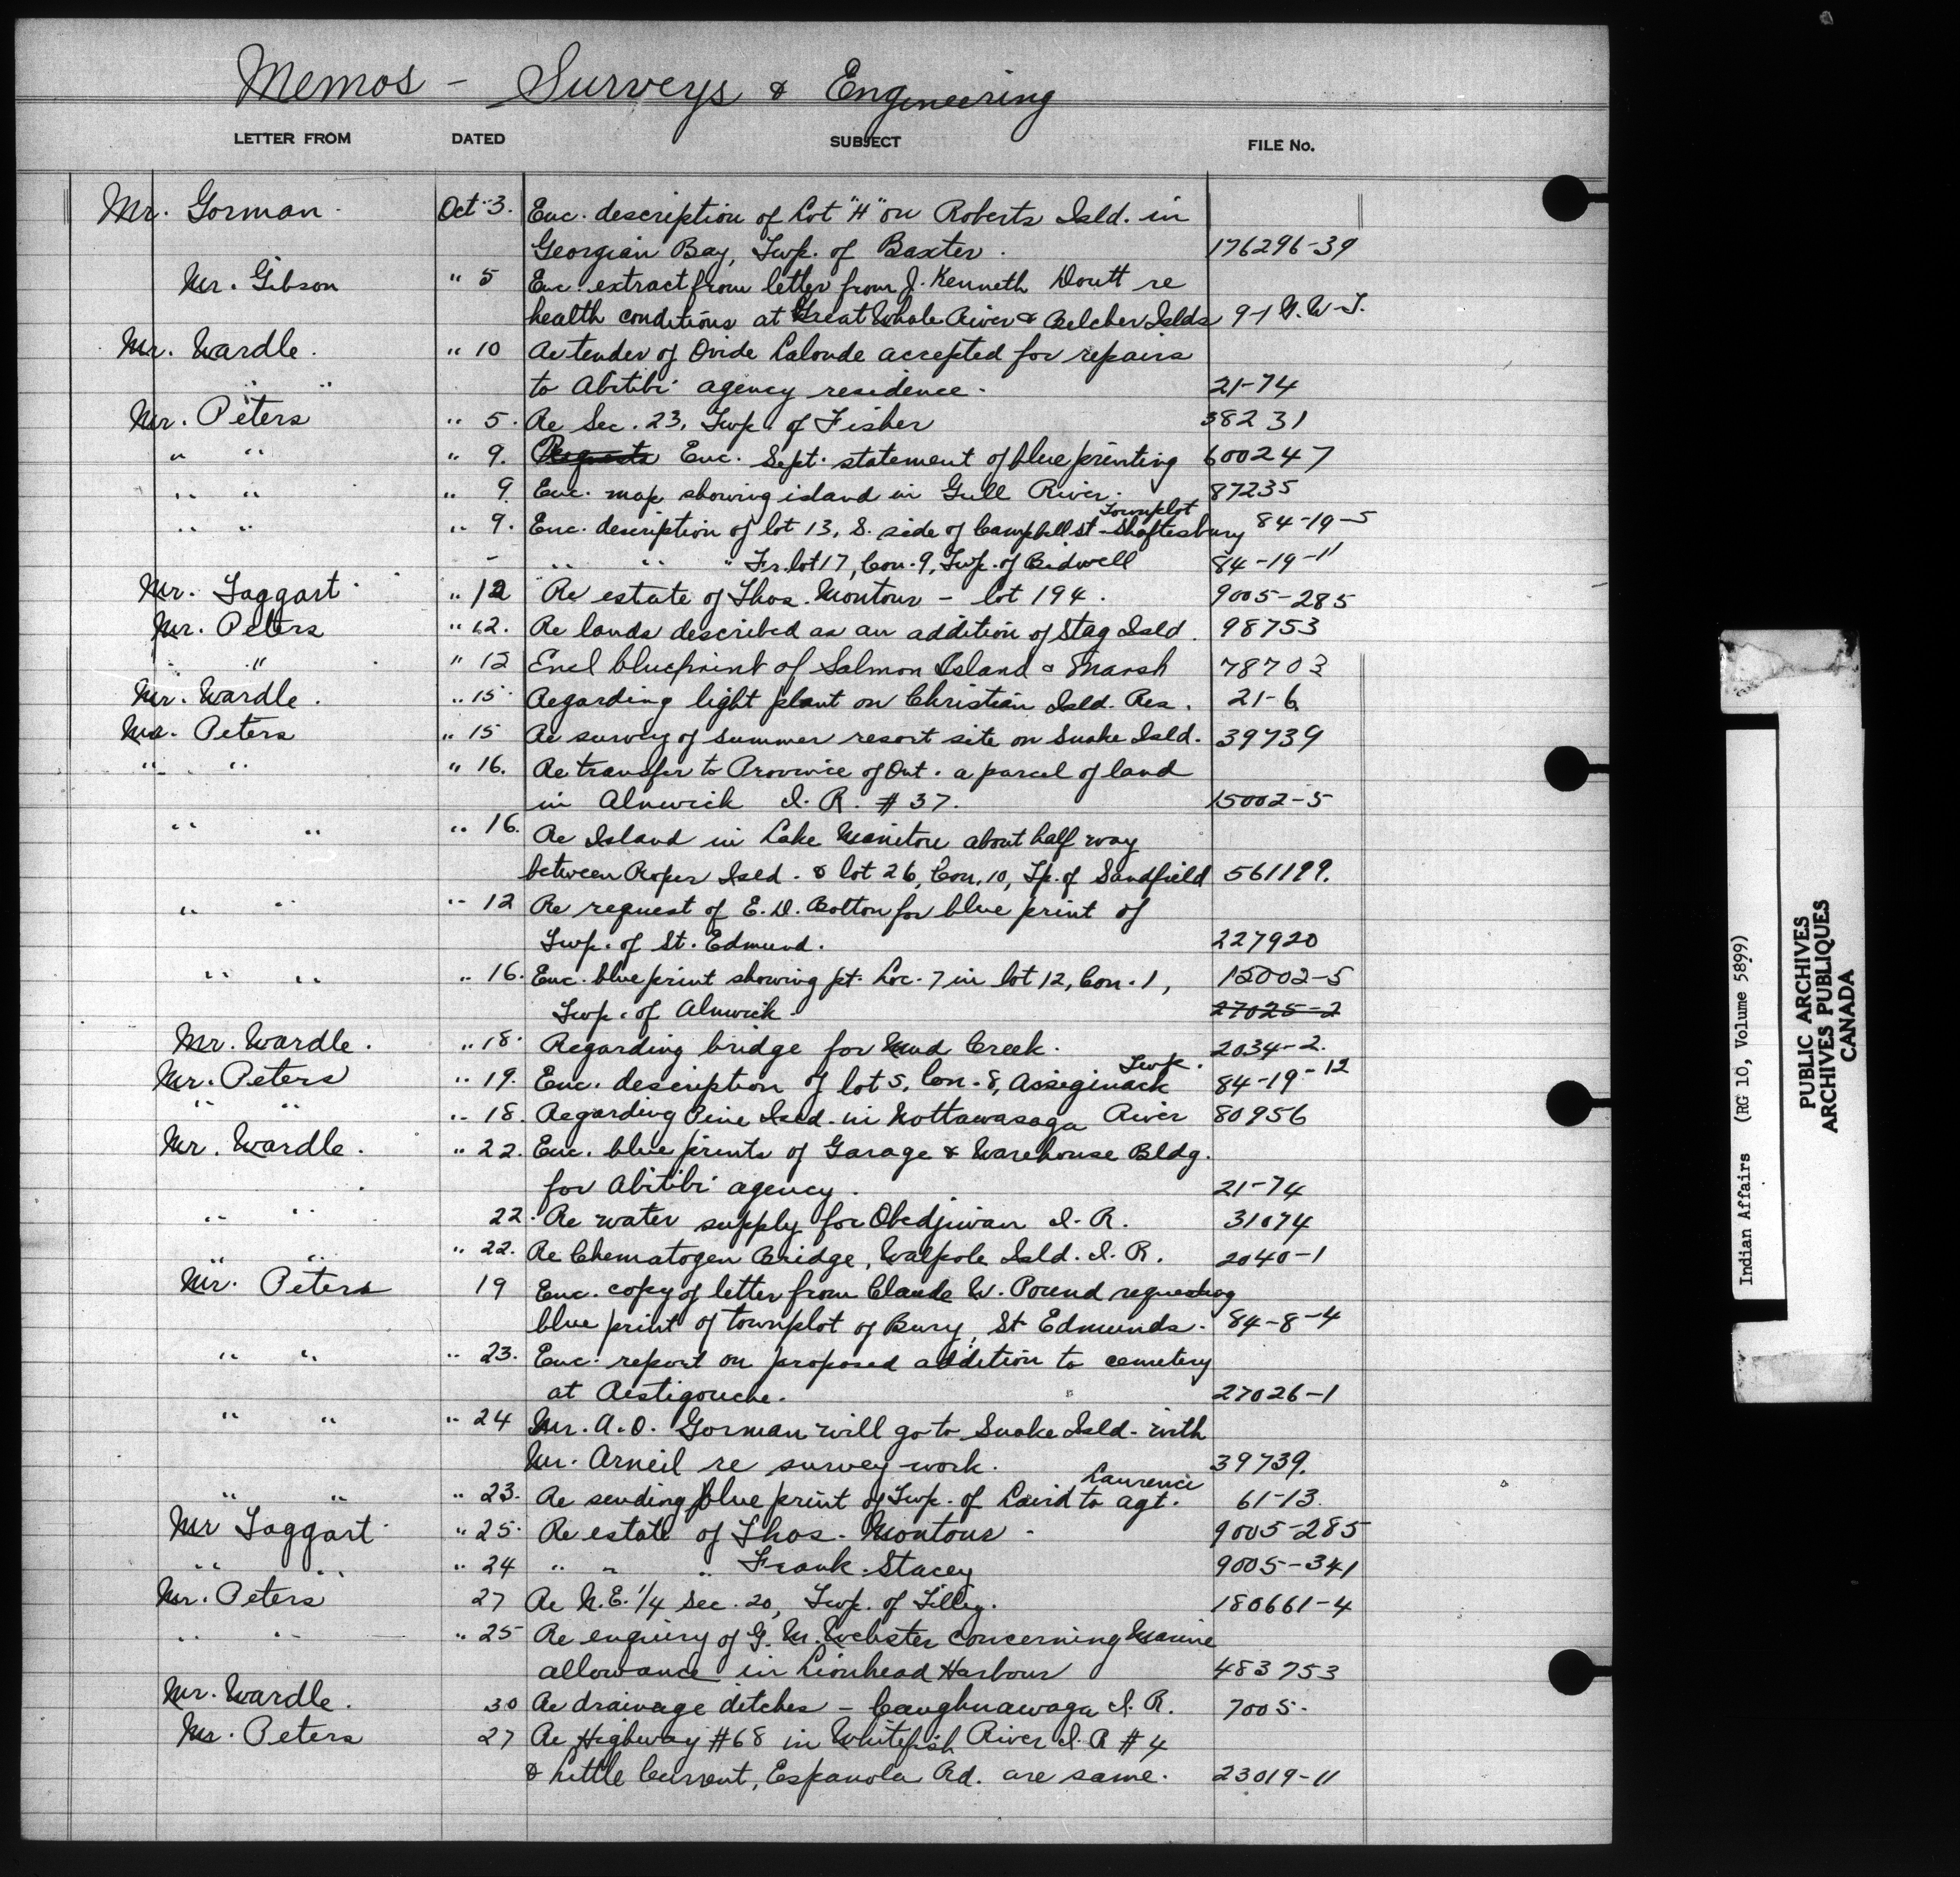 Memos - Surveys & Engineering
LETTER FROM DATED SUBJECT FILE No.
Mr. Gorman Oct 3. Enc. description of Lot "H" on Roberts Isld. in
Georgian Bay, Twp. of Baxter. 176296-39
Mr. Gibson " 5 Enc. extract from letter from J. Kenneth Doutt re
health conditions at Great Whale River & Belcher Islds 9-1 N.W.T.
Mr. Wardle. " 10 Re tender of Ovide Lalonde accepted for repairs
" " to Abitibi agency residence. 21-74
Mr. Peters " 5. Re Sec. 23, Twp. of Fisher 38231
" " " 9. Requests Enc. Sept. statement of blue printing 600247
" " " 9. Enc. map showing island in Gull River. 87235
Townplot
" " " 9. Enc. description of lot 13, S. side of Campbell St - Shaftesbury 84-19-5
- " " " Fr. lot 17, Con. 9, Twp. of Bidwell 84-19-11
Mr. Taggart " 12 Re estate of Thos. Montour - lot 194. 9005-285
Mr. Peters " 12. Re lands described as an addition of Stag Isld. 98753
" " " 12 Encl blueprint of Salmon Island & Marsh 78703
Mr. Wardle. " 15 Regarding light plant on Christian Isld. Res. 21-6
Mr. Peters " 15 Re survey of summer resort site on Snake Isld. 39739
" " " 16. Re transfer to Province of Ont. a parcel of land
in Alnwick I.R. #37. 15002-5
" " " 16. Re Island in Lake Manitou about half way
between Roper Isld. & lot 26, Con. 10, Tp. of Sandfield 561199.
" " " 12 Re request of E.D. Bolton for blue print of
Twp. of St. Edmund. 227920
" " " 16. Enc. blue print showing pt. Loc. 7 in lot 12, Con. 1, 15002-5
Twp. of Alnwick. 27025-2
Mr. Wardle. " 18. Regarding bridge for Mud Creek. 2034-2.
Twp.
Mr. Peters " 19. Enc. description of lot 5, Con. 8, Assiginack 84-19-12
" " " 18. Regarding Pine Isld. in Nottawasaga River 80956
Mr. Wardle. " 22. Enc. blue prints of Garage & Warehouse Bldg.
for Abitibi agency. 21-74
" " 22. Re water supply for Obedjiwan I.R. 31074
" " " 22. Re Chematogen Bridge, Walpole Isld. I.R. 2040-1
Mr. Peters 19 Enc. copy of letter from Claude W. Pound requesting
blue print of townplot of Bury, St Edmunds. 84-8-4
" " " 23. Enc. report on proposed addition to cemetery
at Restigouche. 27026-1
" " " 24 Mr. A.O. Gorman will go to Snake Isld. with
Mr. Arneil re survey work. 39739.
Laurence
" " " 23. Re sending blue print of Twp. of Laird to agt. 61-13.
Mr Taggart " 25. Re estate of Thos. Montour. 9005-285
" " " 24 " " " Frank Stacey 9005-341
Mr. Peters 27 Re N.E. 1/4 Sec. 20, Twp. of Tilley. 180661-4
" " " 25 Re enquiry of G.M. Webster concerning Marine
allowance in Lionhead Harbour 483753
Mr. Wardle. 30 Re drainage ditches - Caughnawaga I.R. 7005.
Mr. Peters 27 Re Highway #68 in Whitefish River I.R #4
& Little Current, Espanola Rd. are same. 23019-11
Indian Affairs (RG 10, Volume 5899)
PUBLIC ARCHIVES
ARCHIVES PUBLIQUES
CANADA